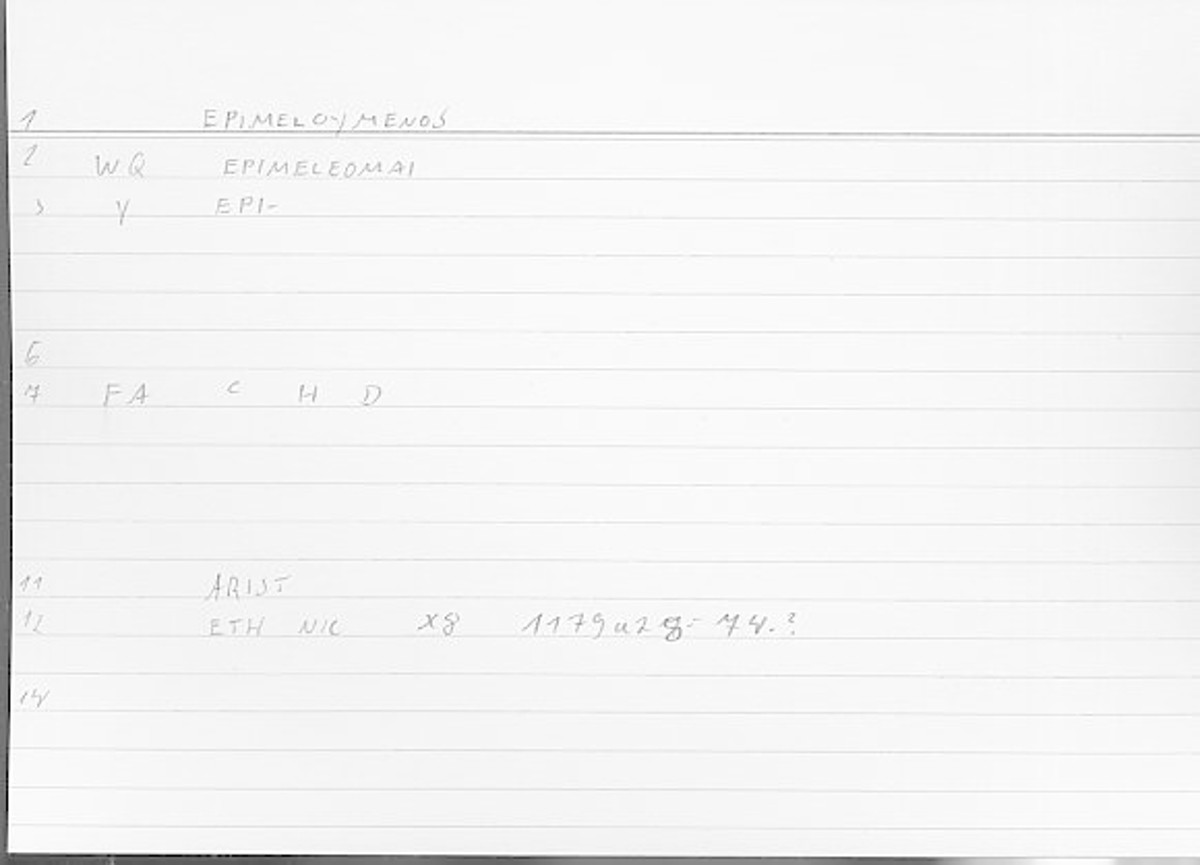 1 EPIMELOYMENOS
2 WQ EPIMELEOMAI
3 Y EPI-
6
7 FA C H D
11 ARIST
12 ETH NIC X8 1179a28- ?
14